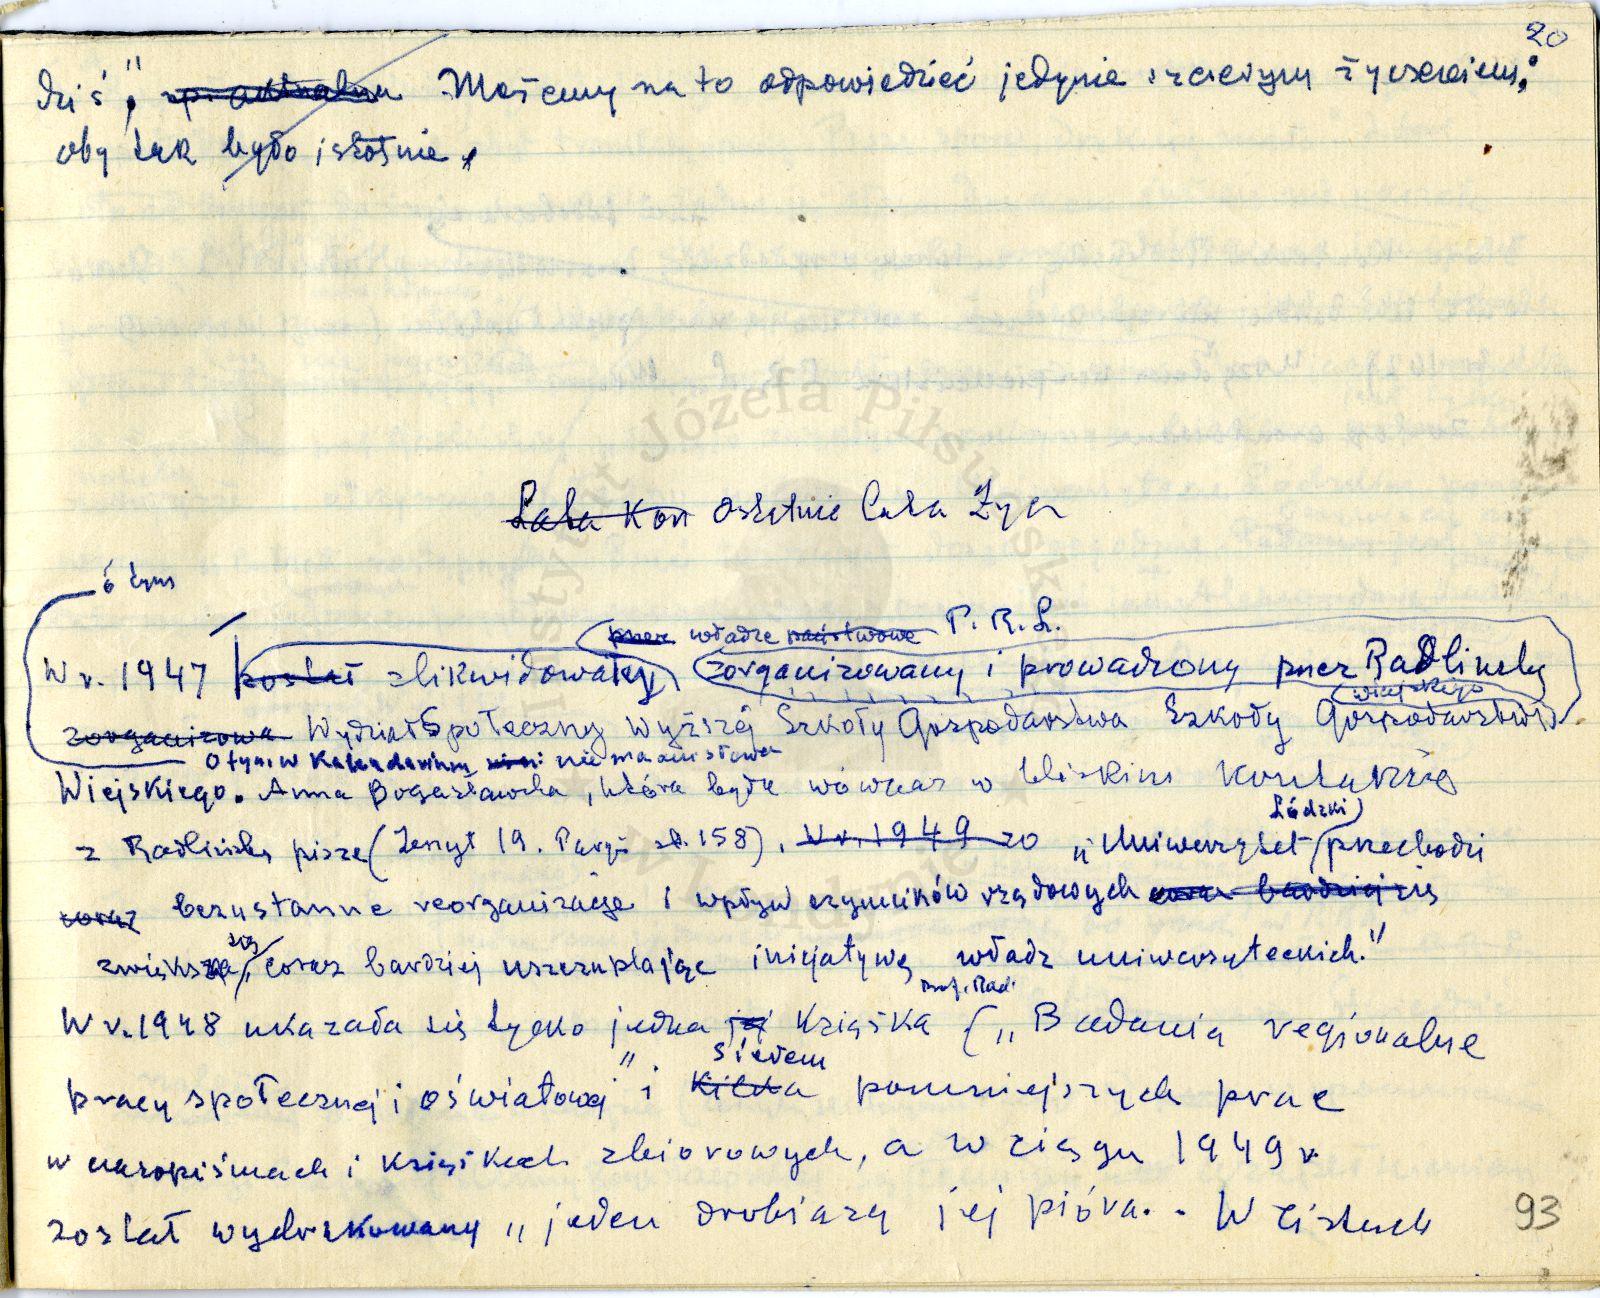 20
dziś", np. aktualne Możemy na to odpowiedzieć jedynie szczerym życzeniem:
oby tak było istotnie.
Lata Kon Ostatnie lata Życa
6 tym
przez władze państwowe P. R. L.
W r. 1947 został zlikwidowały zorganizowany i prowadzony przez Radlińską
wiejskiego
zorganizowa Wydział Społeczny Wyższej Szkoły Gospodarstwa Szkoły Gospodarstwa
O tym w Kalendarium nie ma ani słowa
Wiejskiego. Anna Bogusławska, która była wówczas w bliskim kontakcie
Łódzki
z Radlińską pisze (Zeszyt 19. Paryż st. 158), W r. 1949 zo „Uniwersytet przechodzi
coraz bezustanne reorganizacje i wpływ czynników rządowych coraz bardziej się
się
zwiększa, coraz bardziej uszczuplając inicjatywę władz uniwersyteckich."
Prof. Rad.
W r. 1948 ukazała się tylko jedna jej książka („Badania regionalne
siedem
pracy społecznej i oświatowej" i kilka pomniejszych prac
w czasopismach i książkach zbiorowych, a w ciągu 1949 r.
został wydrukowany „jeden drobiazg jej pióra. W listach
93
Instytut Józefa Piłsudskiego w Londynie